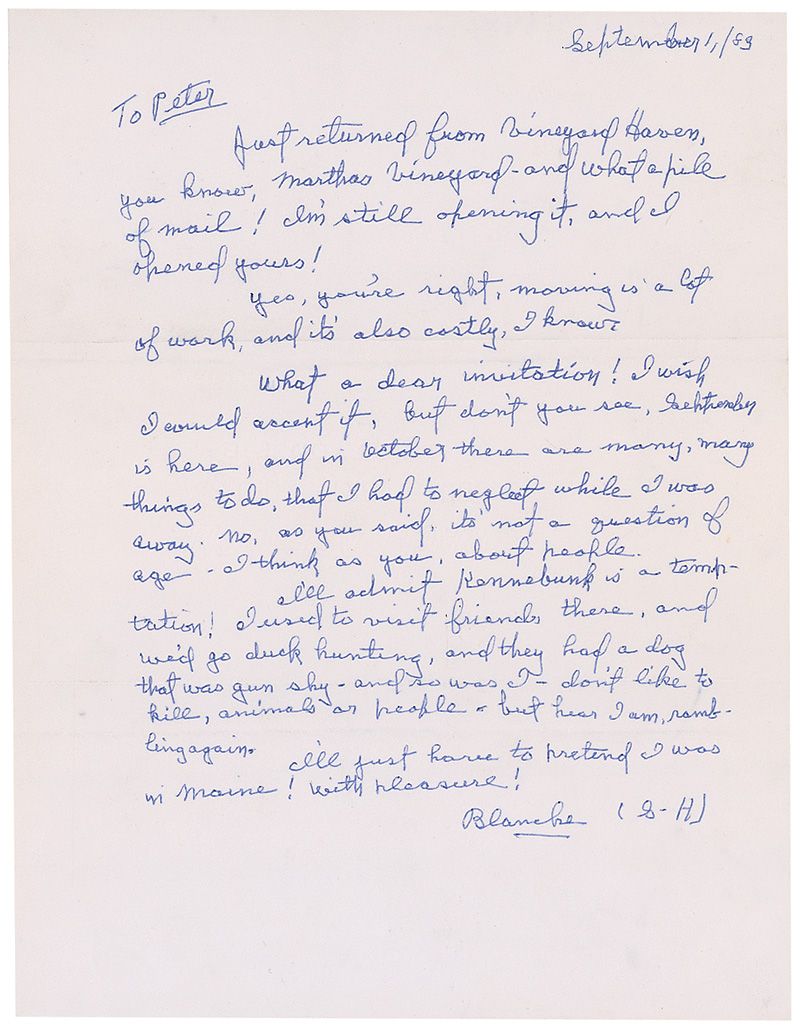 September 1, /89
To Peter
Just returned from Vineyard Haven,
you know, Marthas Vineyard - and what a pile
of mail! I'm still opening it, and I
opened yours!
Yes, you're right, moving is a lot
of work, and it's also costly, I know.
What a dear invitation! I wish
I could accent it, but don't you see, September
is here, and in October there are many, many
things to do, that I had to neglect while I was
away. No, as you said, it's not a question of
age - I think as you, about people.
I'll admit Kennebunk is a temp-
tation! I used to visit friends there, and
we'd go duck hunting, and they had a dog
that was gun shy - and so was I - don't like to
kill, animals or people - but hear I am, ramb-
ling again.
I'll just have to pretend I was
in Maine! With pleasure!
Blanche (S-H)